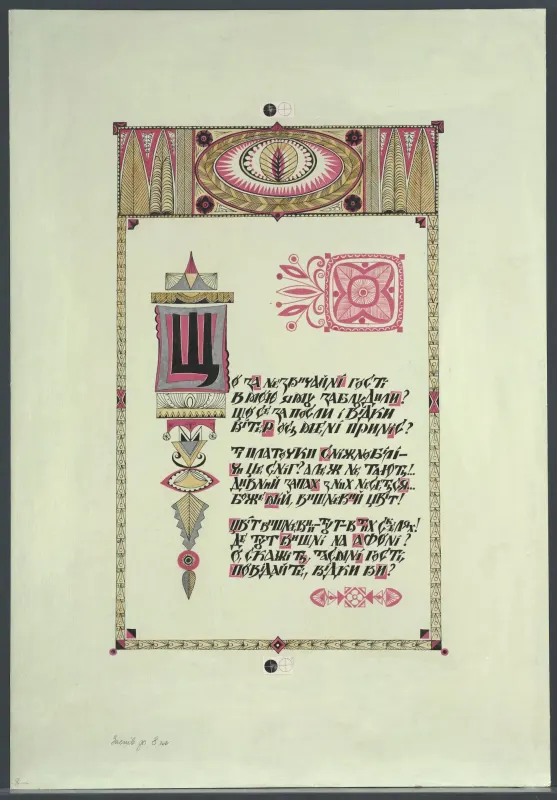 Що за незвичайні гості
В мою яму заблудили?
Що се за посли і відки
Вітер ось мені приніс?
Ті платочки сніжнобілі –
Чи це сніг? Але ж не тають!..
Дивний запах з них несеться...
Боже мій, вишневий цвіт!
Цвіт вишневий – тут – в тих скелях!
Де тут вишні на Афоні?
О, скажіть, таємні гості,
Повідайте, відки ви?